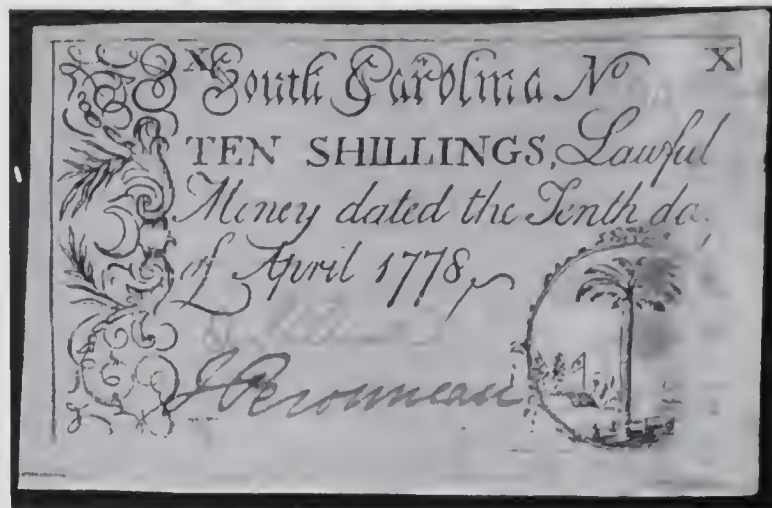 X South Carolina No X
TEN SHILLINGS, Lawful
Money dated the Tenth da
of April 1778
J Peronneau